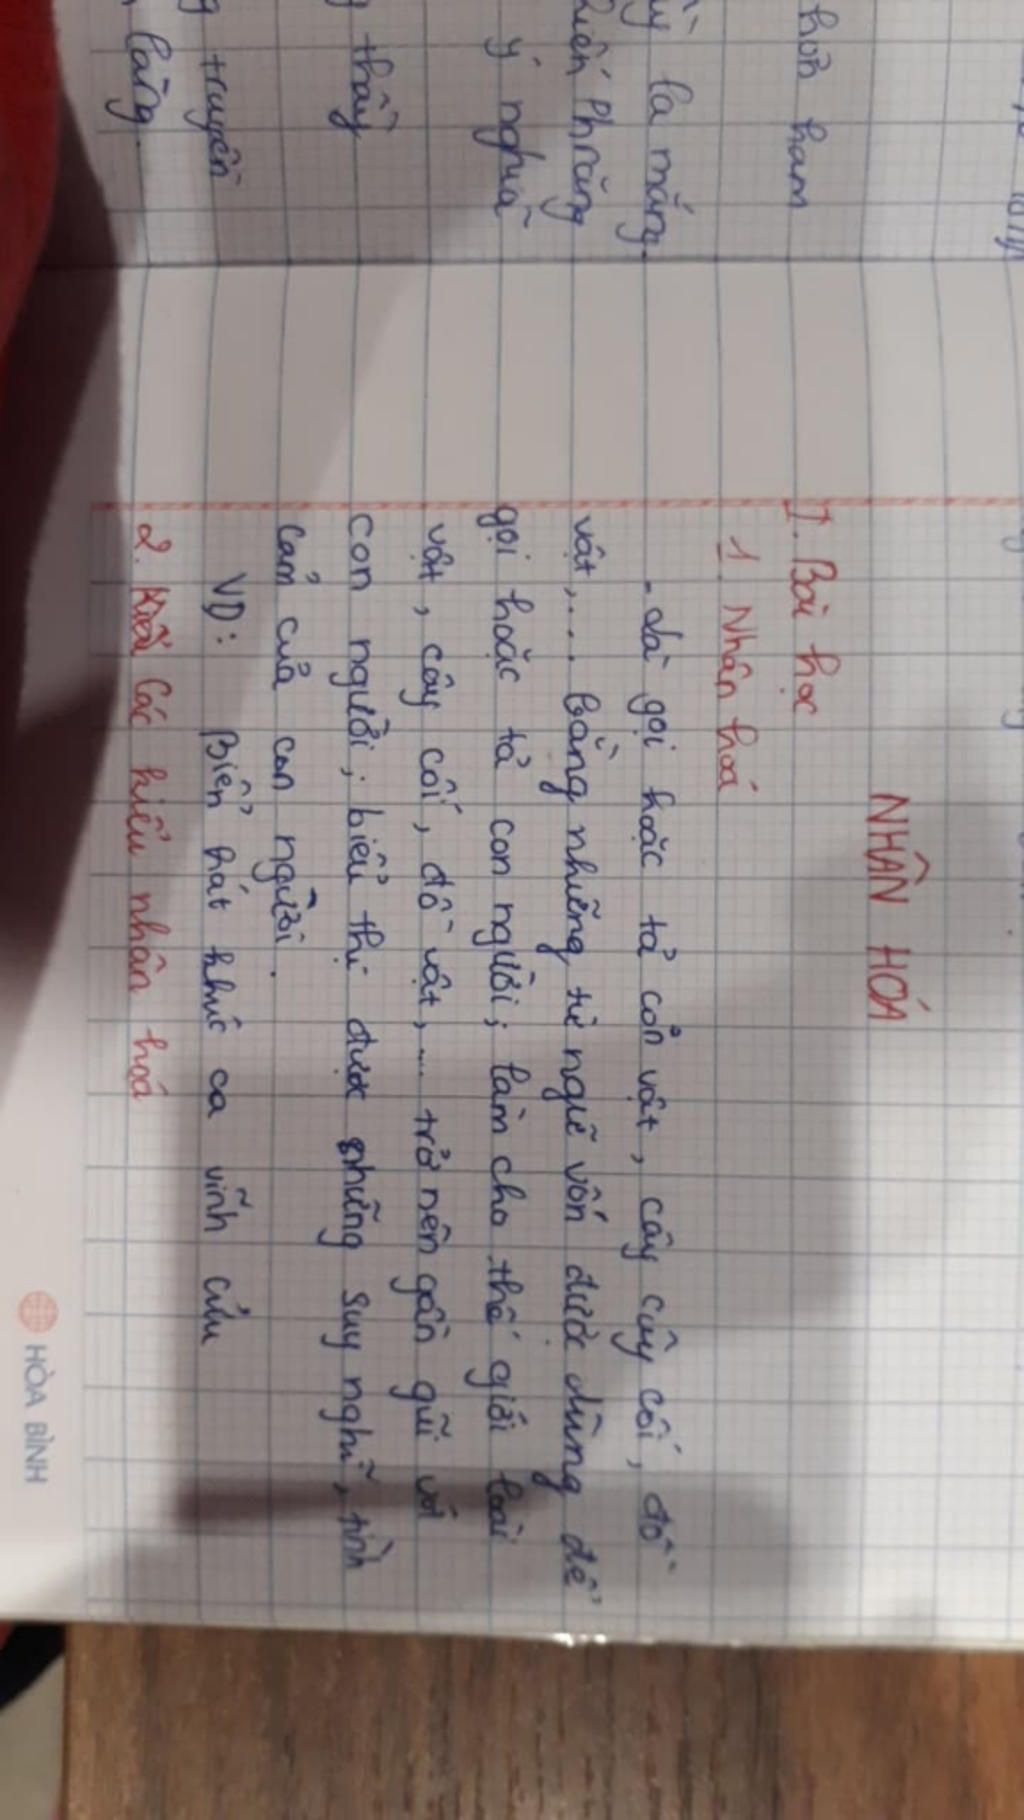 hỏn ham
là mắng.
Phrăng
ý nghĩa
thầy
truyền
làng.
NHÂN HOÁ
I. Bài học
1. Nhân hoá
- Là gọi hoặc tả con vật, cây cây cối, đồ
vật,... bằng những từ ngữ vốn được dùng để
gọi hoặc tả con người; làm cho thế giới loài
vật, cây cối, đồ vật,... trở nên gần gũi với
con người; biểu thị được những suy nghĩ, tình
cảm của con người.
VD: Biển hát khúc ca vĩnh cửu
2. Các kiểu nhân hoá
HÒA BÌNH